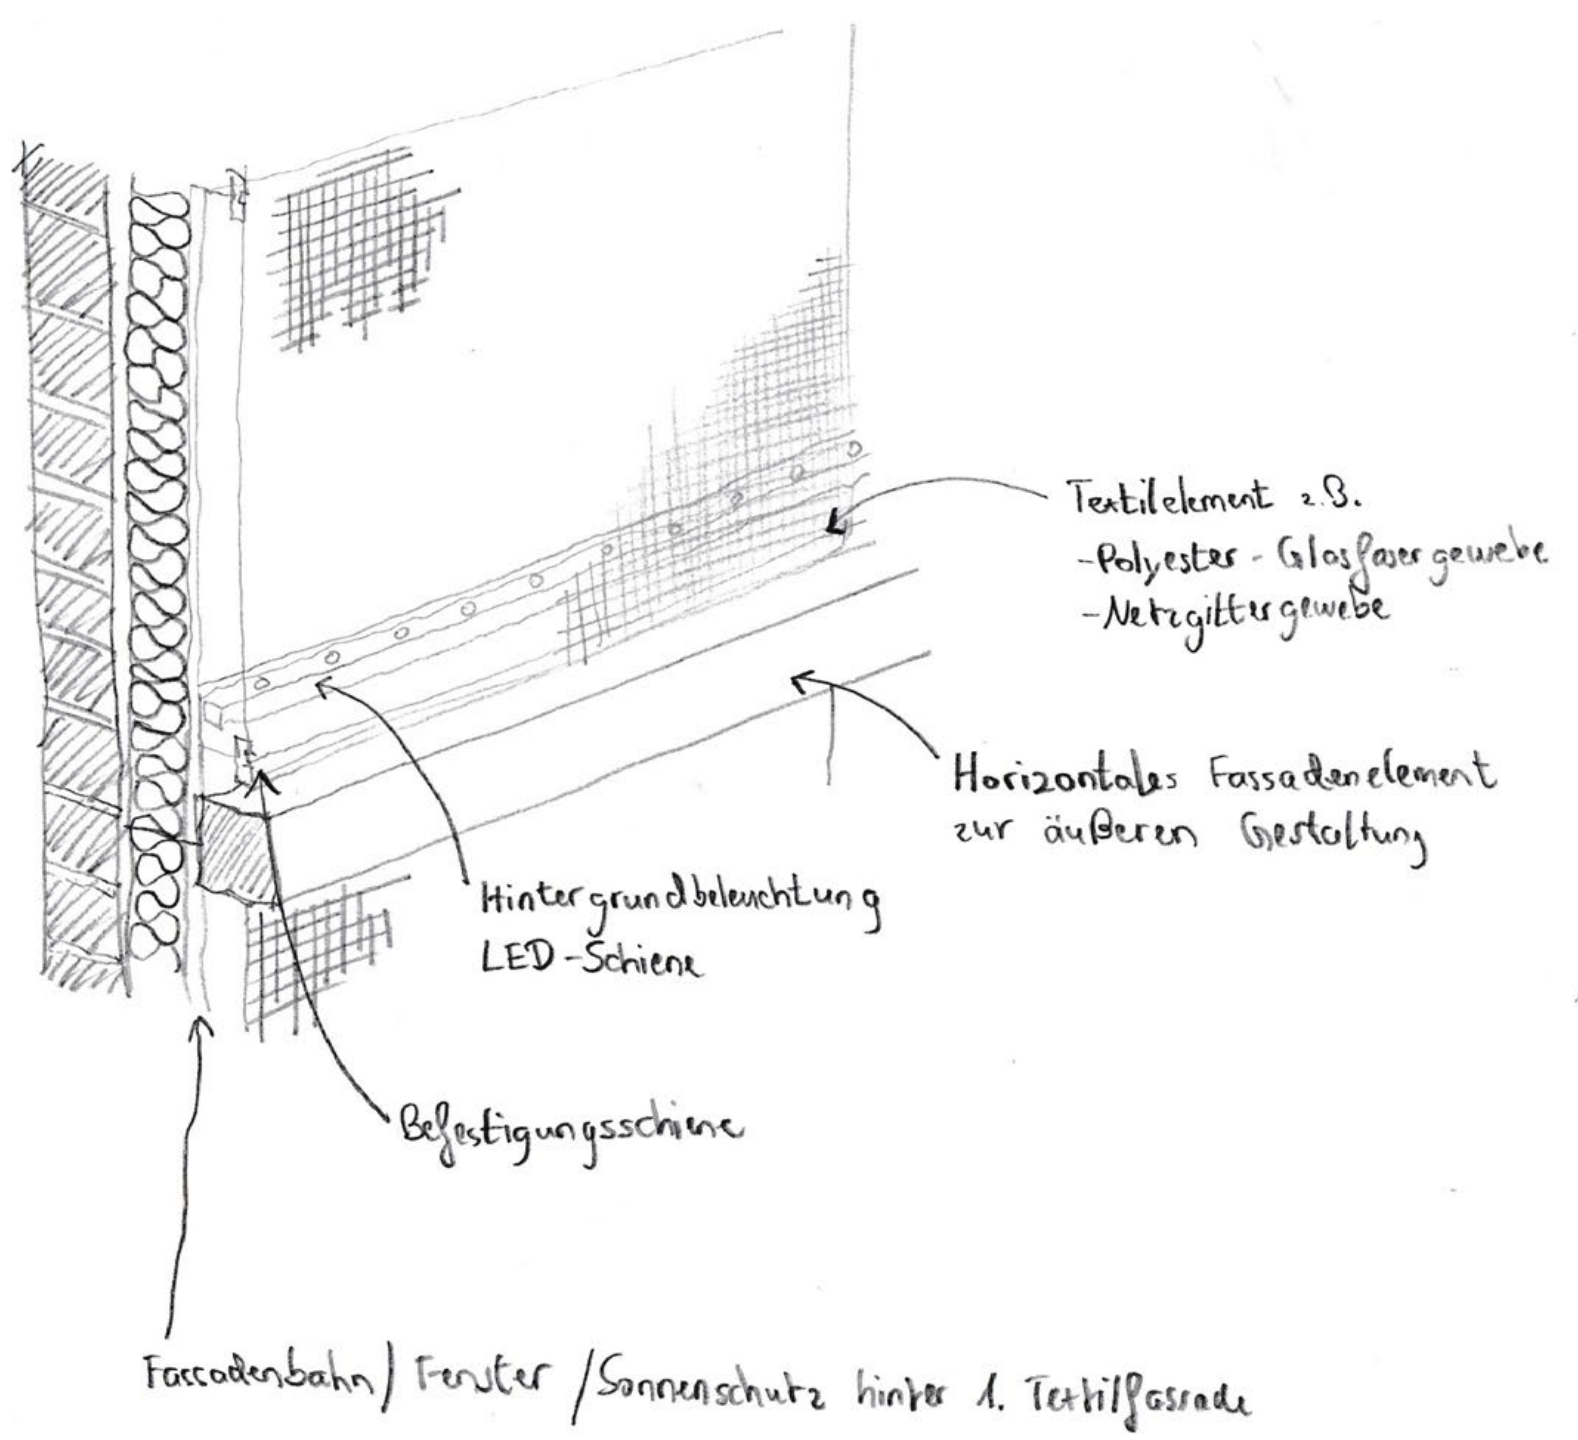 Textilelement z.B.
-Polyester-Glasfasergewebe
-Netzgittergewebe
Horizontales Fassadenelement
zur äußeren Gestaltung
Hintergrundbeleuchtung
LED-Schiene
Befestigungsschiene
Fassadenbahn/Fenster/Sonnenschutz hinter 1. Textilfassade